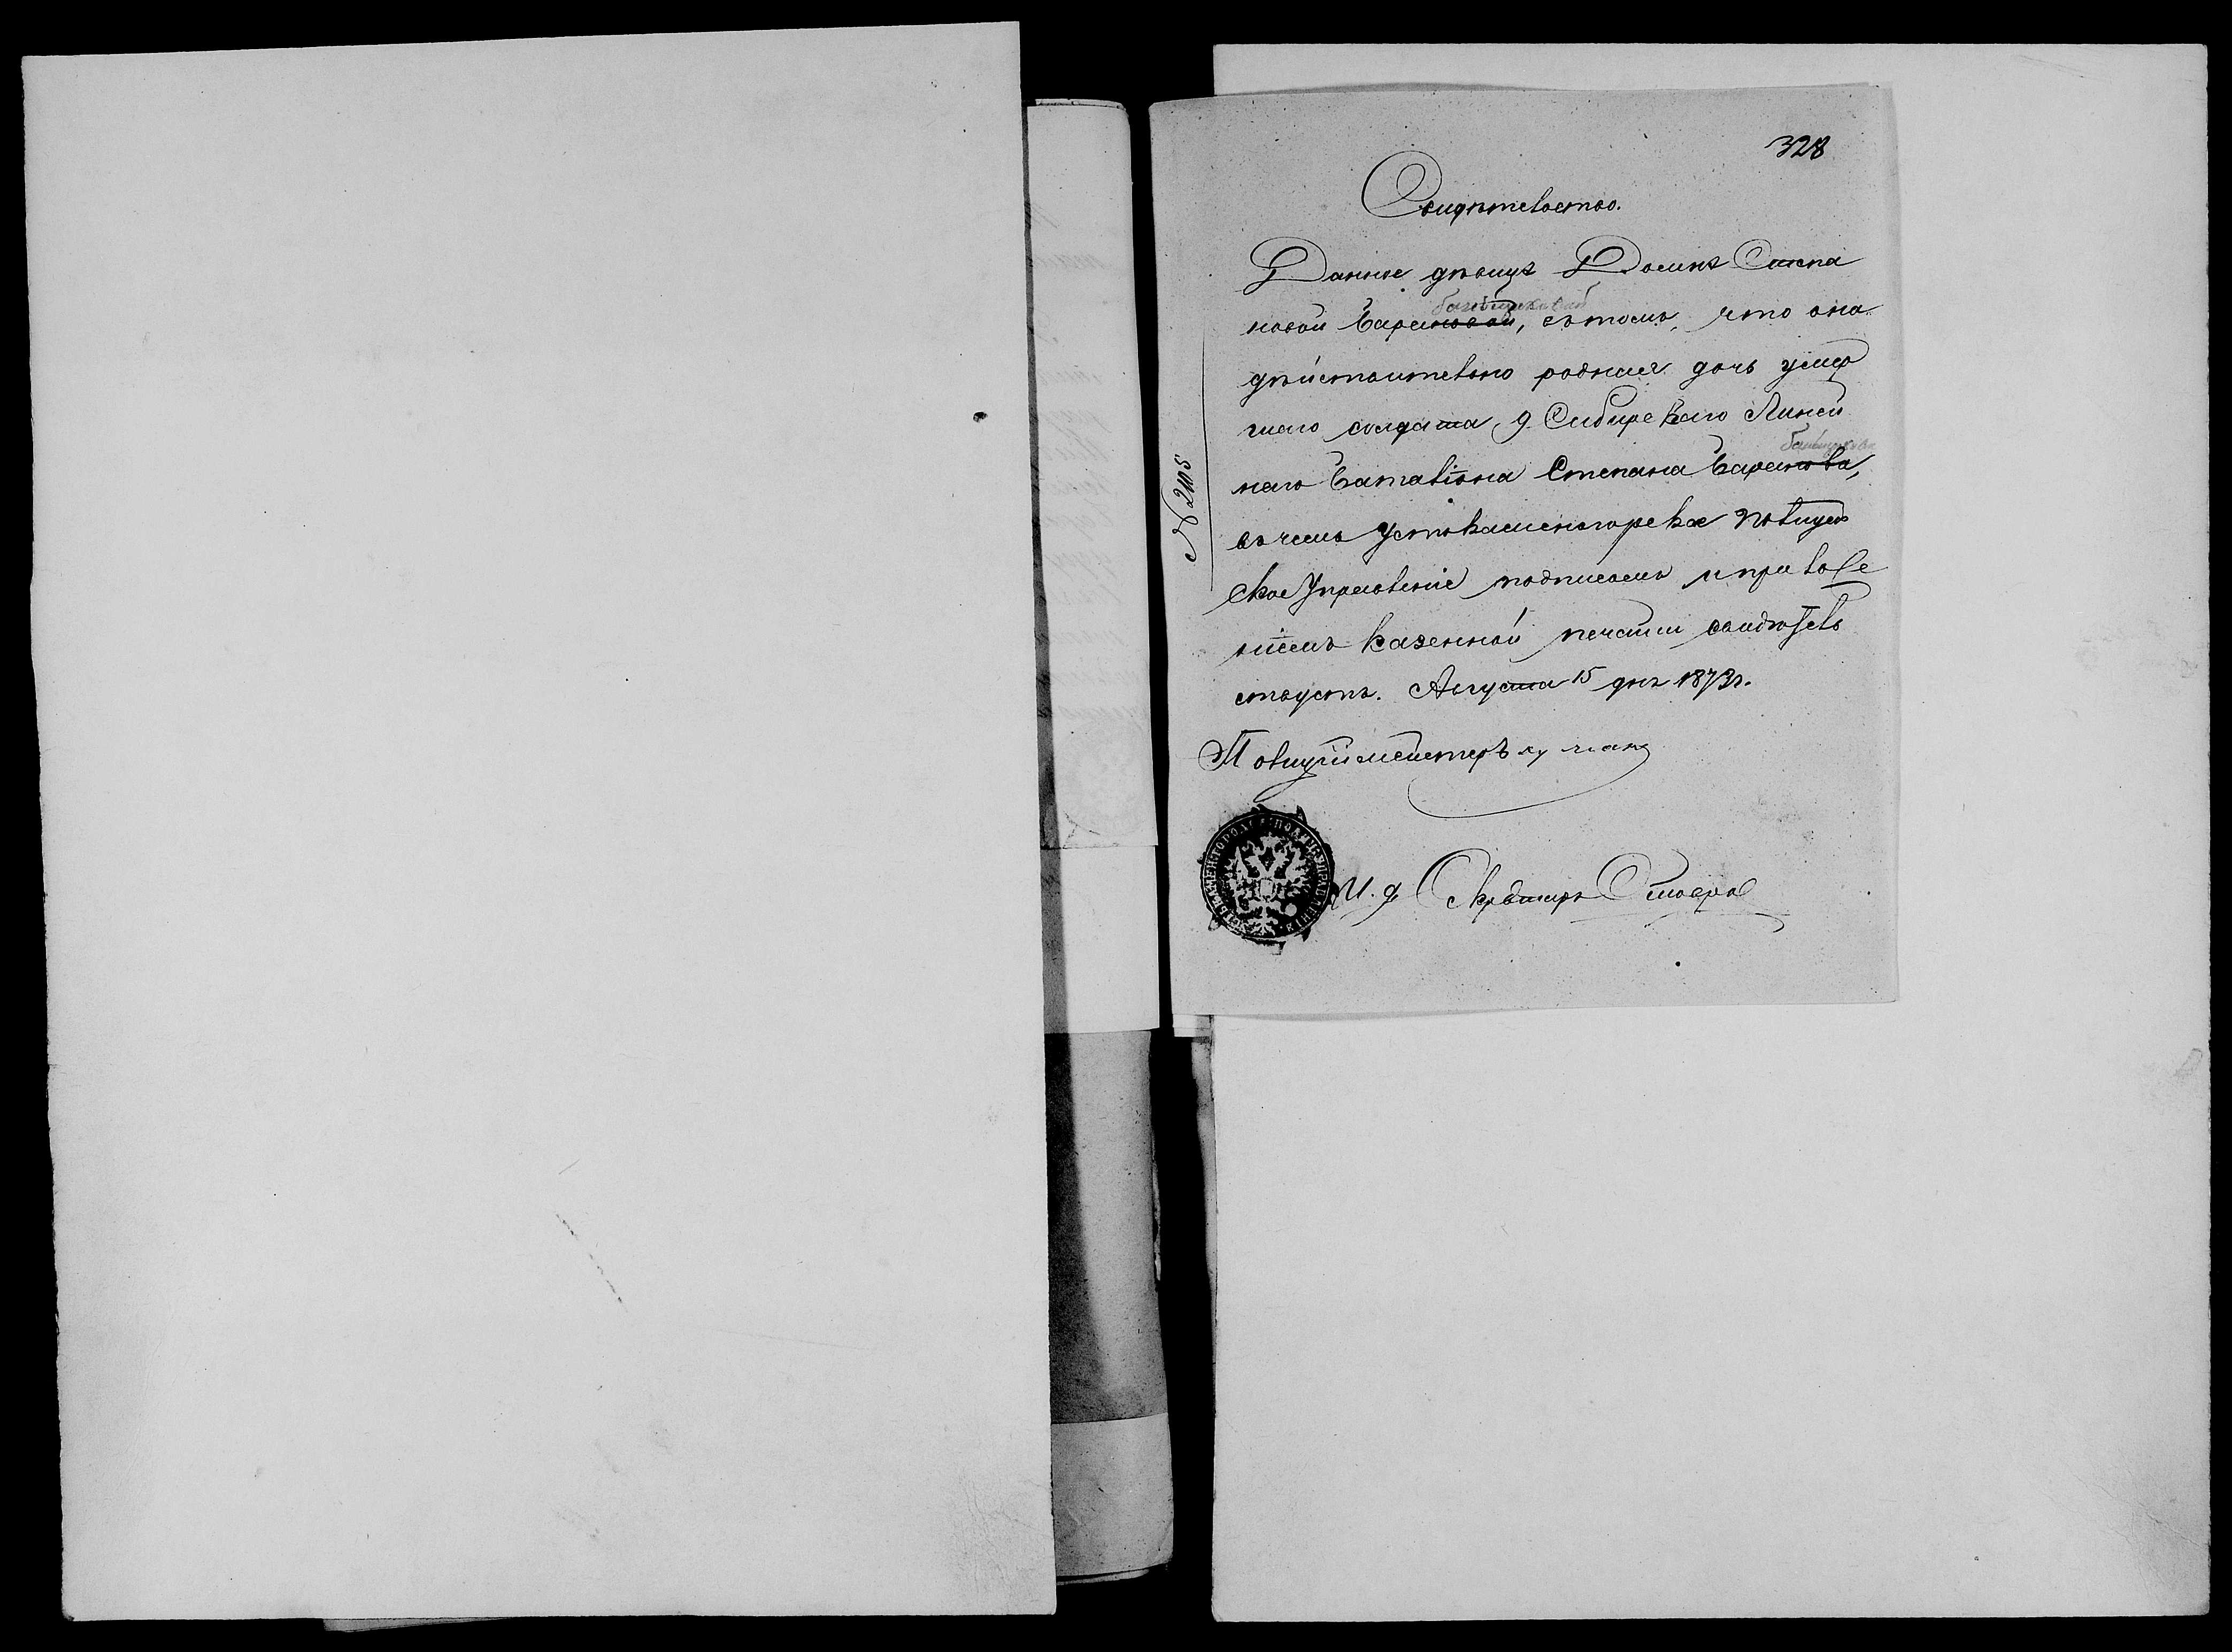 328
Свидѣтельство.
Данное дѣвицѣ Домнѣ Степа
новой Бариновой, въ томъ, что она
дѣйствительно родная дочь умер
шаго солдата 9 Сибирскаго Линей
наго Баталіона Степана Баринова,
въ чемъ Устькаменогорское Полицей
ское Управленіе подписомъ и приложе
ніемъ казенной печати свидѣтель
ствуетъ. Августа 15 дня 1873 г.
№ 2105
Полиціймейстеръ
И. д. Секретаря